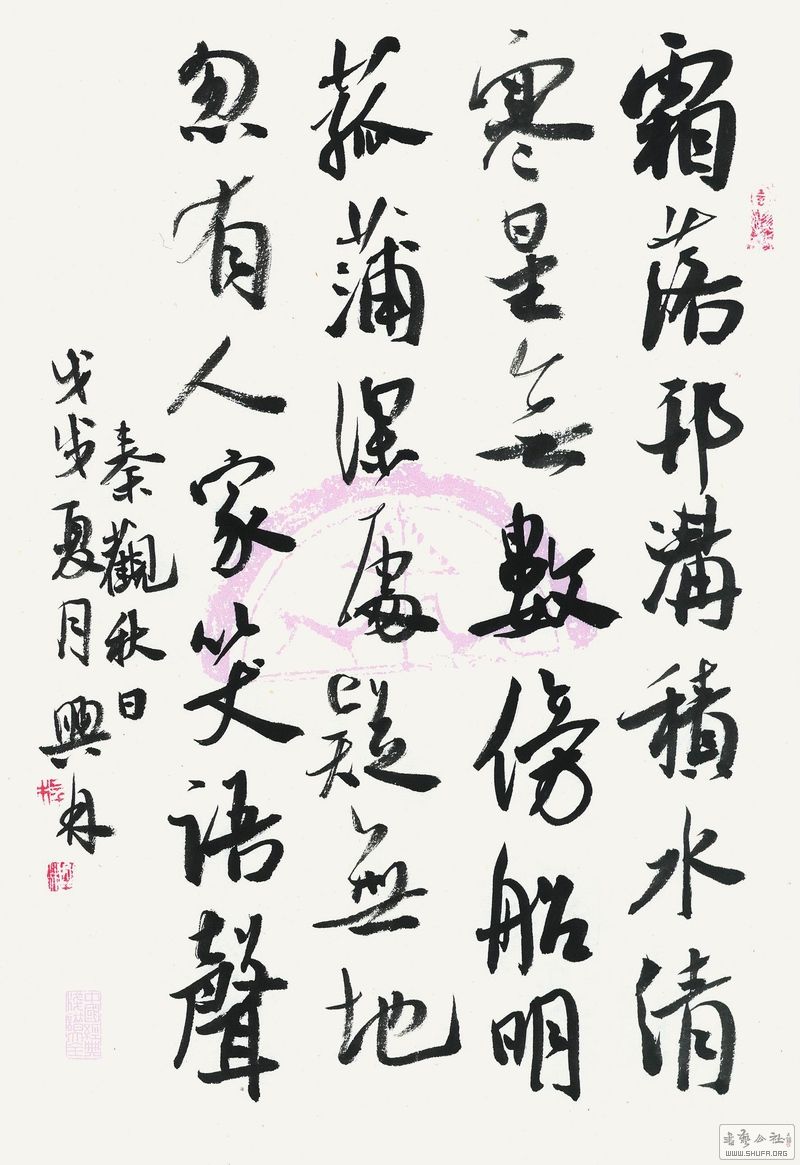 霜落邗溝積水清
寒星無數傍船明
菰蒲深處疑無地
忽有人家笑語聲
秦觀秋日
戊戌夏月興
書藝公社
WWW.SHUFA.ORG